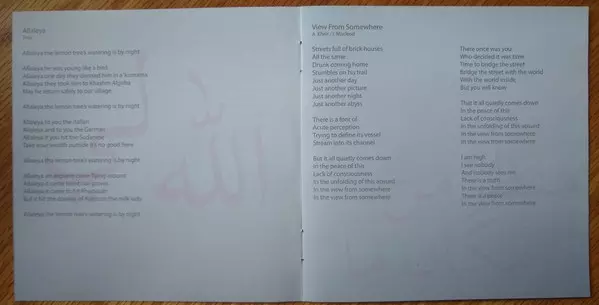 Allaiya
Allaiya the lemon tree's watering is by night
Allaiya he was young like a bird
Allaiya one day they deposed him in a komasha
Allaiya they took him to Khashm Algirba
May he return safely to our village
Allaiya the lemon tree's watering is by night
Allaiya to you the Italian
Allaiya and to you the German
Allaiya if you hit the Sudanese
Take your wealth outside it's no good here
Allaiya the lemon tree's watering is by night
Allaiya an airplane came flying around
Allaiya it came to hit Khartoum
But it hit the donkey of Kaltoum the milk lady
Allaiya the lemon tree's watering is by night
View From Somewhere
Streets full of brick houses
All the same
Drunk coming home
Stumbles on his trail
Just another day
Just another picture
Just another night
Just another abyss
There is a fool of
Acute perception
Trying to define its vessel
Stream into its channels
But it all quietly comes down
In the peace of this
Lack of consciousness
In the unfolding of this wound
In the view from somewhere
In the view from somewhere
There once was you
Who decided it was time
Time to bridge the street
Bridge the street with the world
With the world inside
But you still knew
That it all quietly comes down
In the peace of this
Lack of consciousness
In the unfolding of this wound
In the view from somewhere
In the view from somewhere
I am high
I see nobody
And nobody sees me
There is a truth
In the view from somewhere
There is a
In the view from somewhere